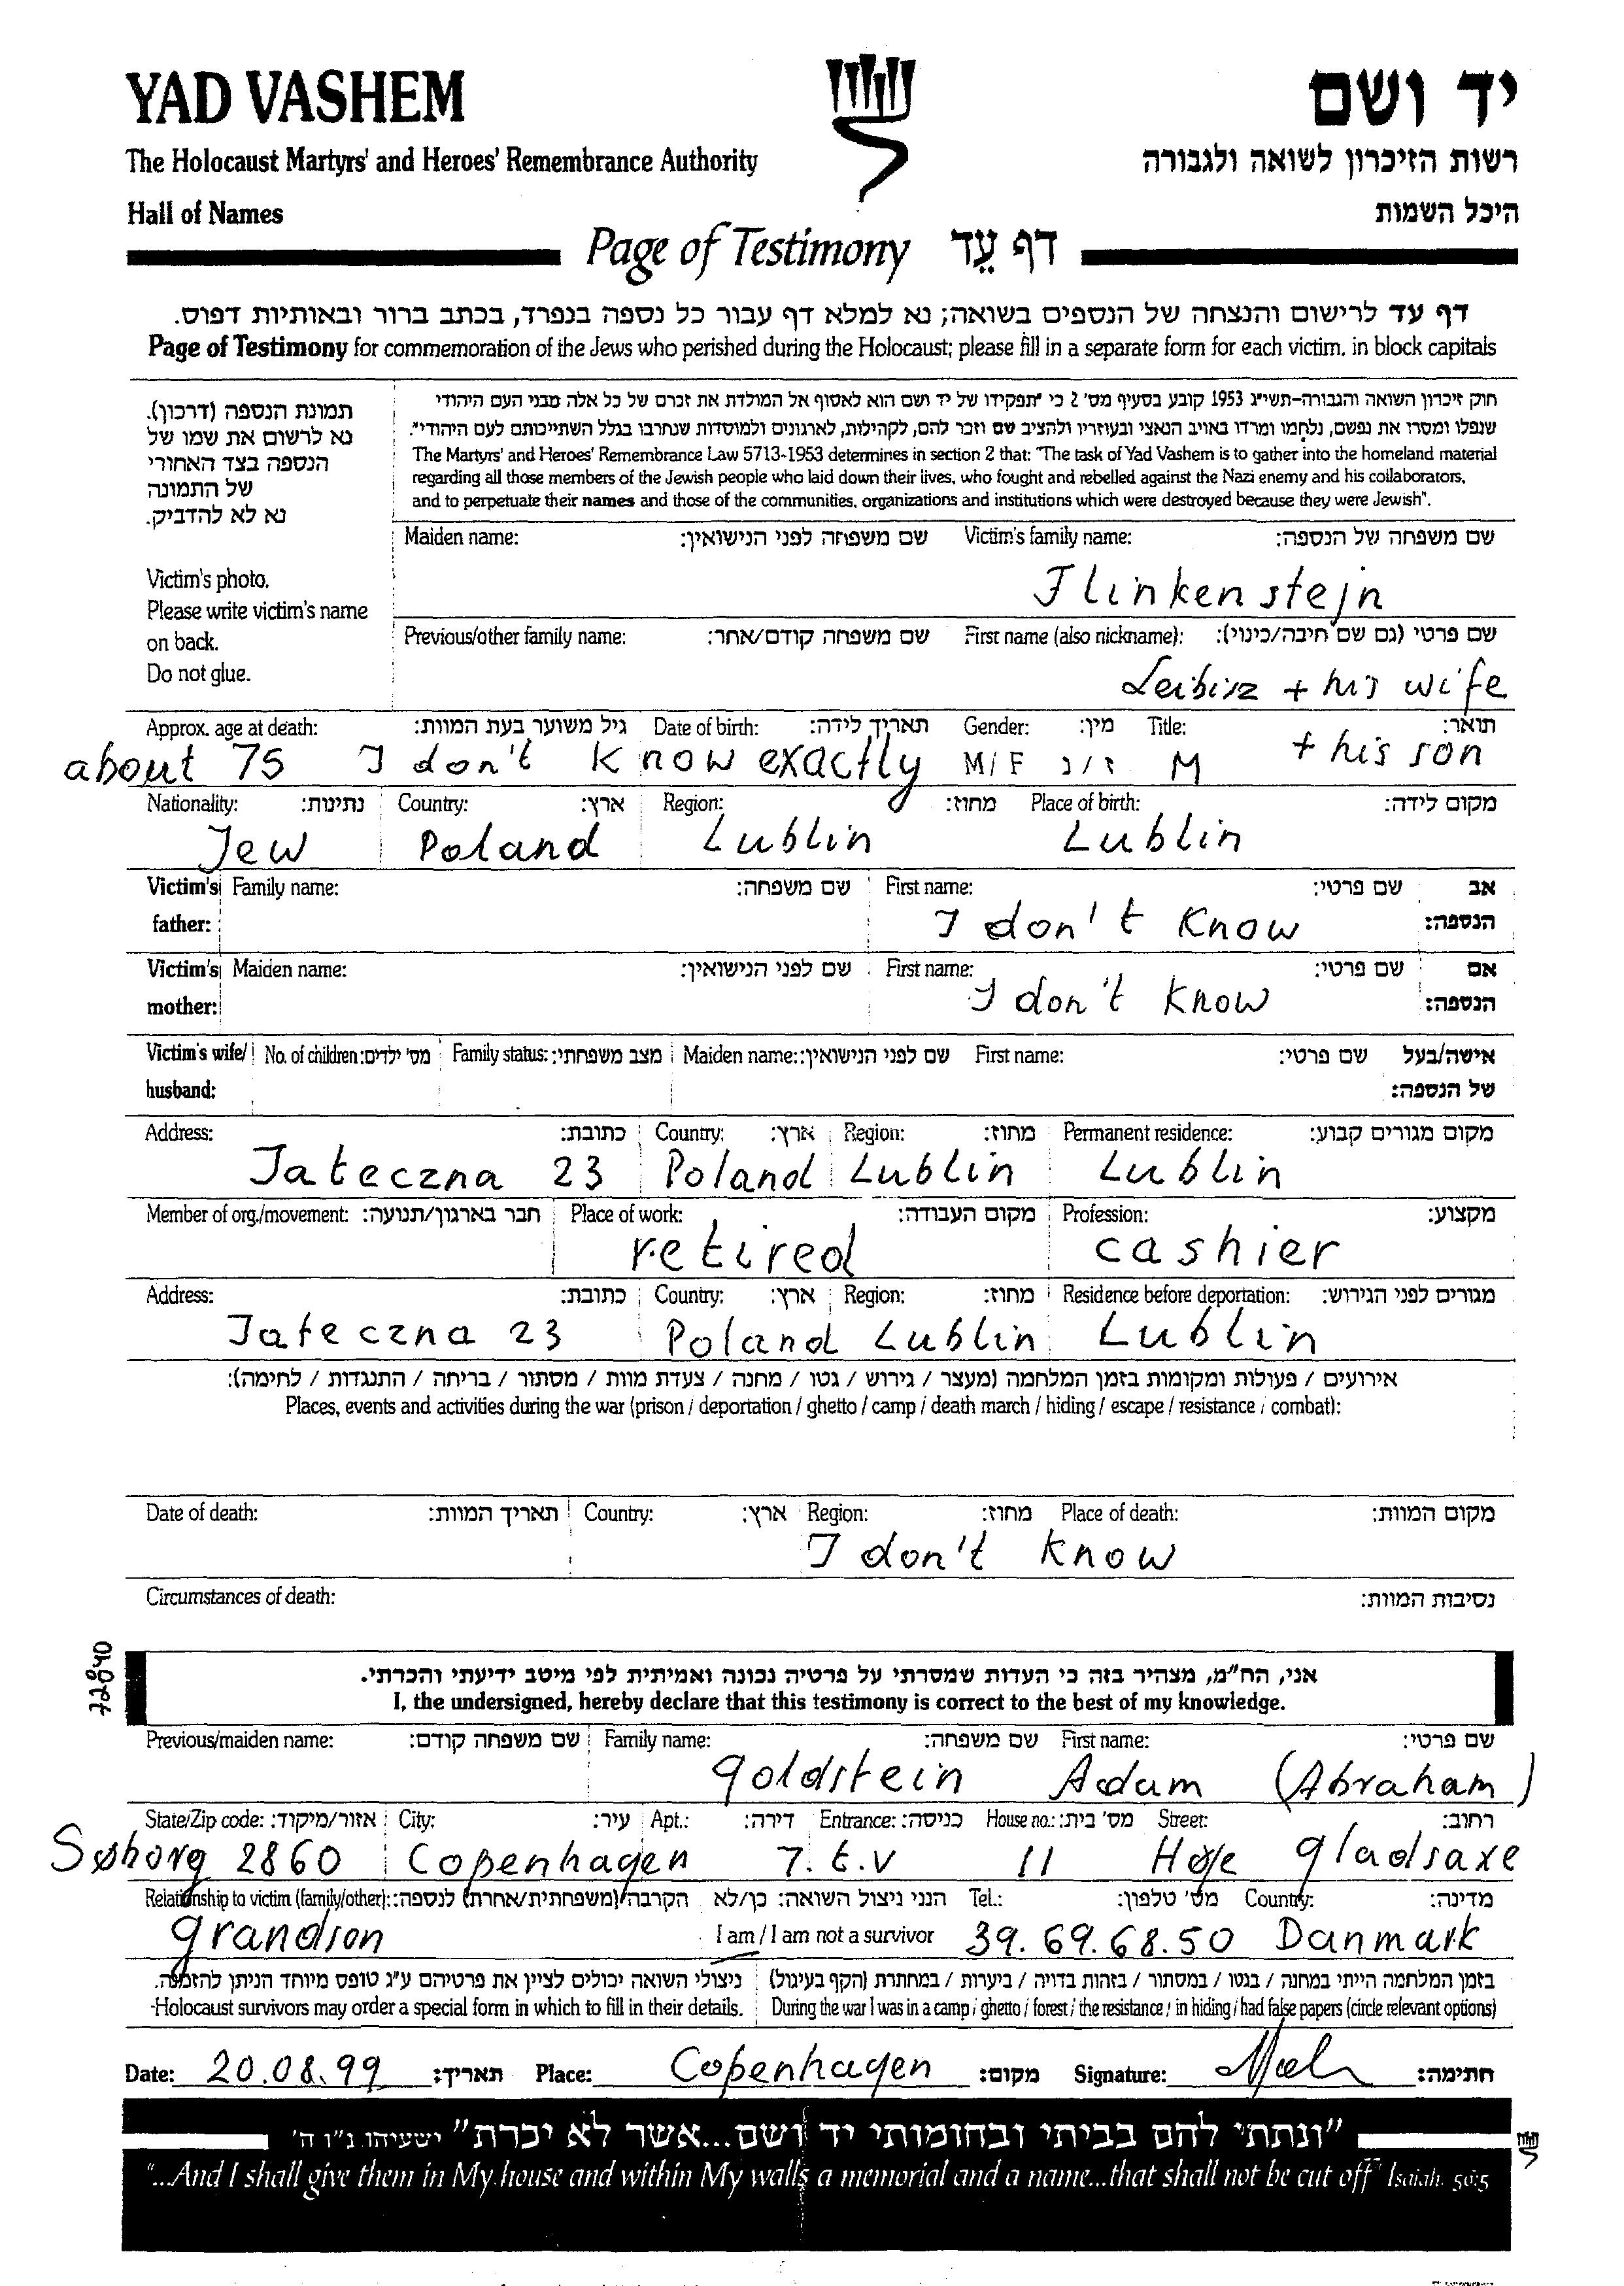 YAD VASHEM
יד ושם
The Holocaust Martyrs' and Heroes' Remembrance Authority
רשות הזיכרון לשואה ולגבורה
Hall of Names
היכל השמות
Page of Testimony דף עֵד
דף עד לרישום והנצחה של הנספים בשואה; נא למלא דף עבור כל נספה בנפרד, בכתב ברור ובאותיות דפוס.
Page of Testimony for commemoration of the Jews who perished during the Holocaust; please fill in a separate form for each victim, in block capitals
תמונת הנספה (דרכון).
נא לרשום את שמו של
הנספה בצד האחורי
של התמונה
נא לא להדביק.
Victim's photo.
Please write victim's name
on back.
Do not glue.
חוק זיכרון השואה והגבורה-תשי"ג 1953 קובע בסעיף מס' 2 כי "תפקידו של יד ושם הוא לאסוף אל המולדת את זכרם של כל אלה מבני העם היהודי
שנפלו ומסרו את נפשם, נלחמו ומרדו באויב הנאצי ובעוזריו ולהציב שם וזכר להם, לקהילות, לארגונים ולמוסדות שנחרבו בגלל השתייכותם לעם היהודי".
The Martyrs' and Heroes' Remembrance Law 5713-1953 determines in section 2 that: "The task of Yad Vashem is to gather into the homeland material
regarding all those members of the Jewish people who laid down their lives, who fought and rebelled against the Nazi enemy and his collaborators,
and to perpetuate their names and those of the communities, organizations and institutions which were destroyed because they were Jewish".
Maiden name: שם משפחה לפני הנישואין: Victim's family name: שם משפחה של הנספה:
Flinkenstejn
Previous/other family name: שם משפחה קודם/אחר: First name (also nickname): שם פרטי (גם שם חיבה/כינוי):
Leibisz + his wife
Approx. age at death: גיל משוער בעת המוות: Date of birth: תאריך לידה: Gender: מין: Title: תואר:
about 75 I don't know exactly M/F ז/נ M + his son
Nationality: נתינות: Country: ארץ: Region: מחוז: Place of birth: מקום לידה:
Jew Poland Lublin Lublin
Victim's Family name: שם משפחה: First name: שם פרטי: אב
father: I don't know הנספה:
Victim's Maiden name: שם לפני הנישואין: First name: שם פרטי: אם
mother: I don't know הנספה:
Victim's wife/ No. of children: מס' ילדים: Family status: מצב משפחתי: Maiden name: שם לפני הנישואין: First name: שם פרטי: אישה/בעל
husband: של הנספה:
Address: כתובת: Country: ארץ: Region: מחוז: Permanent residence: מקום מגורים קבוע:
Jateczna 23 Poland Lublin Lublin
Member of org./movement: חבר בארגון/תנועה: Place of work: מקום העבודה: Profession: מקצוע:
retired cashier
Address: כתובת: Country: ארץ: Region: מחוז: Residence before deportation: מגורים לפני הגירוש:
Jateczna 23 Poland Lublin Lublin
אירועים / פעולות ומקומות בזמן המלחמה (מעצר / גירוש / גטו / מחנה / צעדת מוות / מסתור / בריחה / התנגדות / לחימה):
Places, events and activities during the war (prison / deportation / ghetto / camp / death march / hiding / escape / resistance / combat):
Date of death: תאריך המוות: Country: ארץ: Region: מחוז: Place of death: מקום המוות:
I don't know
Circumstances of death: נסיבות המוות:
72840
אני, הח"מ, מצהיר בזה כי העדות שמסרתי על פרטיה נכונה ואמיתית לפי מיטב ידיעתי והכרתי.
I, the undersigned, hereby declare that this testimony is correct to the best of my knowledge.
Previous/maiden name: שם משפחה קודם: Family name: שם משפחה: First name: שם פרטי:
goldstein Adam (Abraham)
State/Zip code: אזור/מיקוד: City: עיר: Apt.: דירה: Entrance: כניסה: House no.: מס' בית: Street: רחוב:
Søborg 2860 Copenhagen 7. t.v 11 Høje gladsaxe
Relationship to victim (family/other): הקרבה (משפחתית/אחרת) לנספה: הנני ניצול השואה: כן/לא Tel.: מס' טלפון: Country: מדינה:
grandson I am / I am not a survivor 39.69.68.50 Danmark
ניצולי השואה יכולים לציין את פרטיהם ע"ג טופס מיוחד הניתן להזמנה. בזמן המלחמה הייתי במחנה / בגטו / במסתור / בזהות בדויה / ביערות / במחתרת (הקף בעיגול)
Holocaust survivors may order a special form in which to fill in their details. During the war I was in a camp / ghetto / forest / the resistance / in hiding / had false papers (circle relevant options)
Date: 20.08.99 תאריך: Place: Copenhagen מקום: Signature: חתימה:
"ונתתי להם בביתי ובחומותי יד ושם...אשר לא יכרת" ישעיהו נ"ו ה'
"...And I shall give them in My house and within My walls a memorial and a name...that shall not be cut off" Isaiah. 56:5